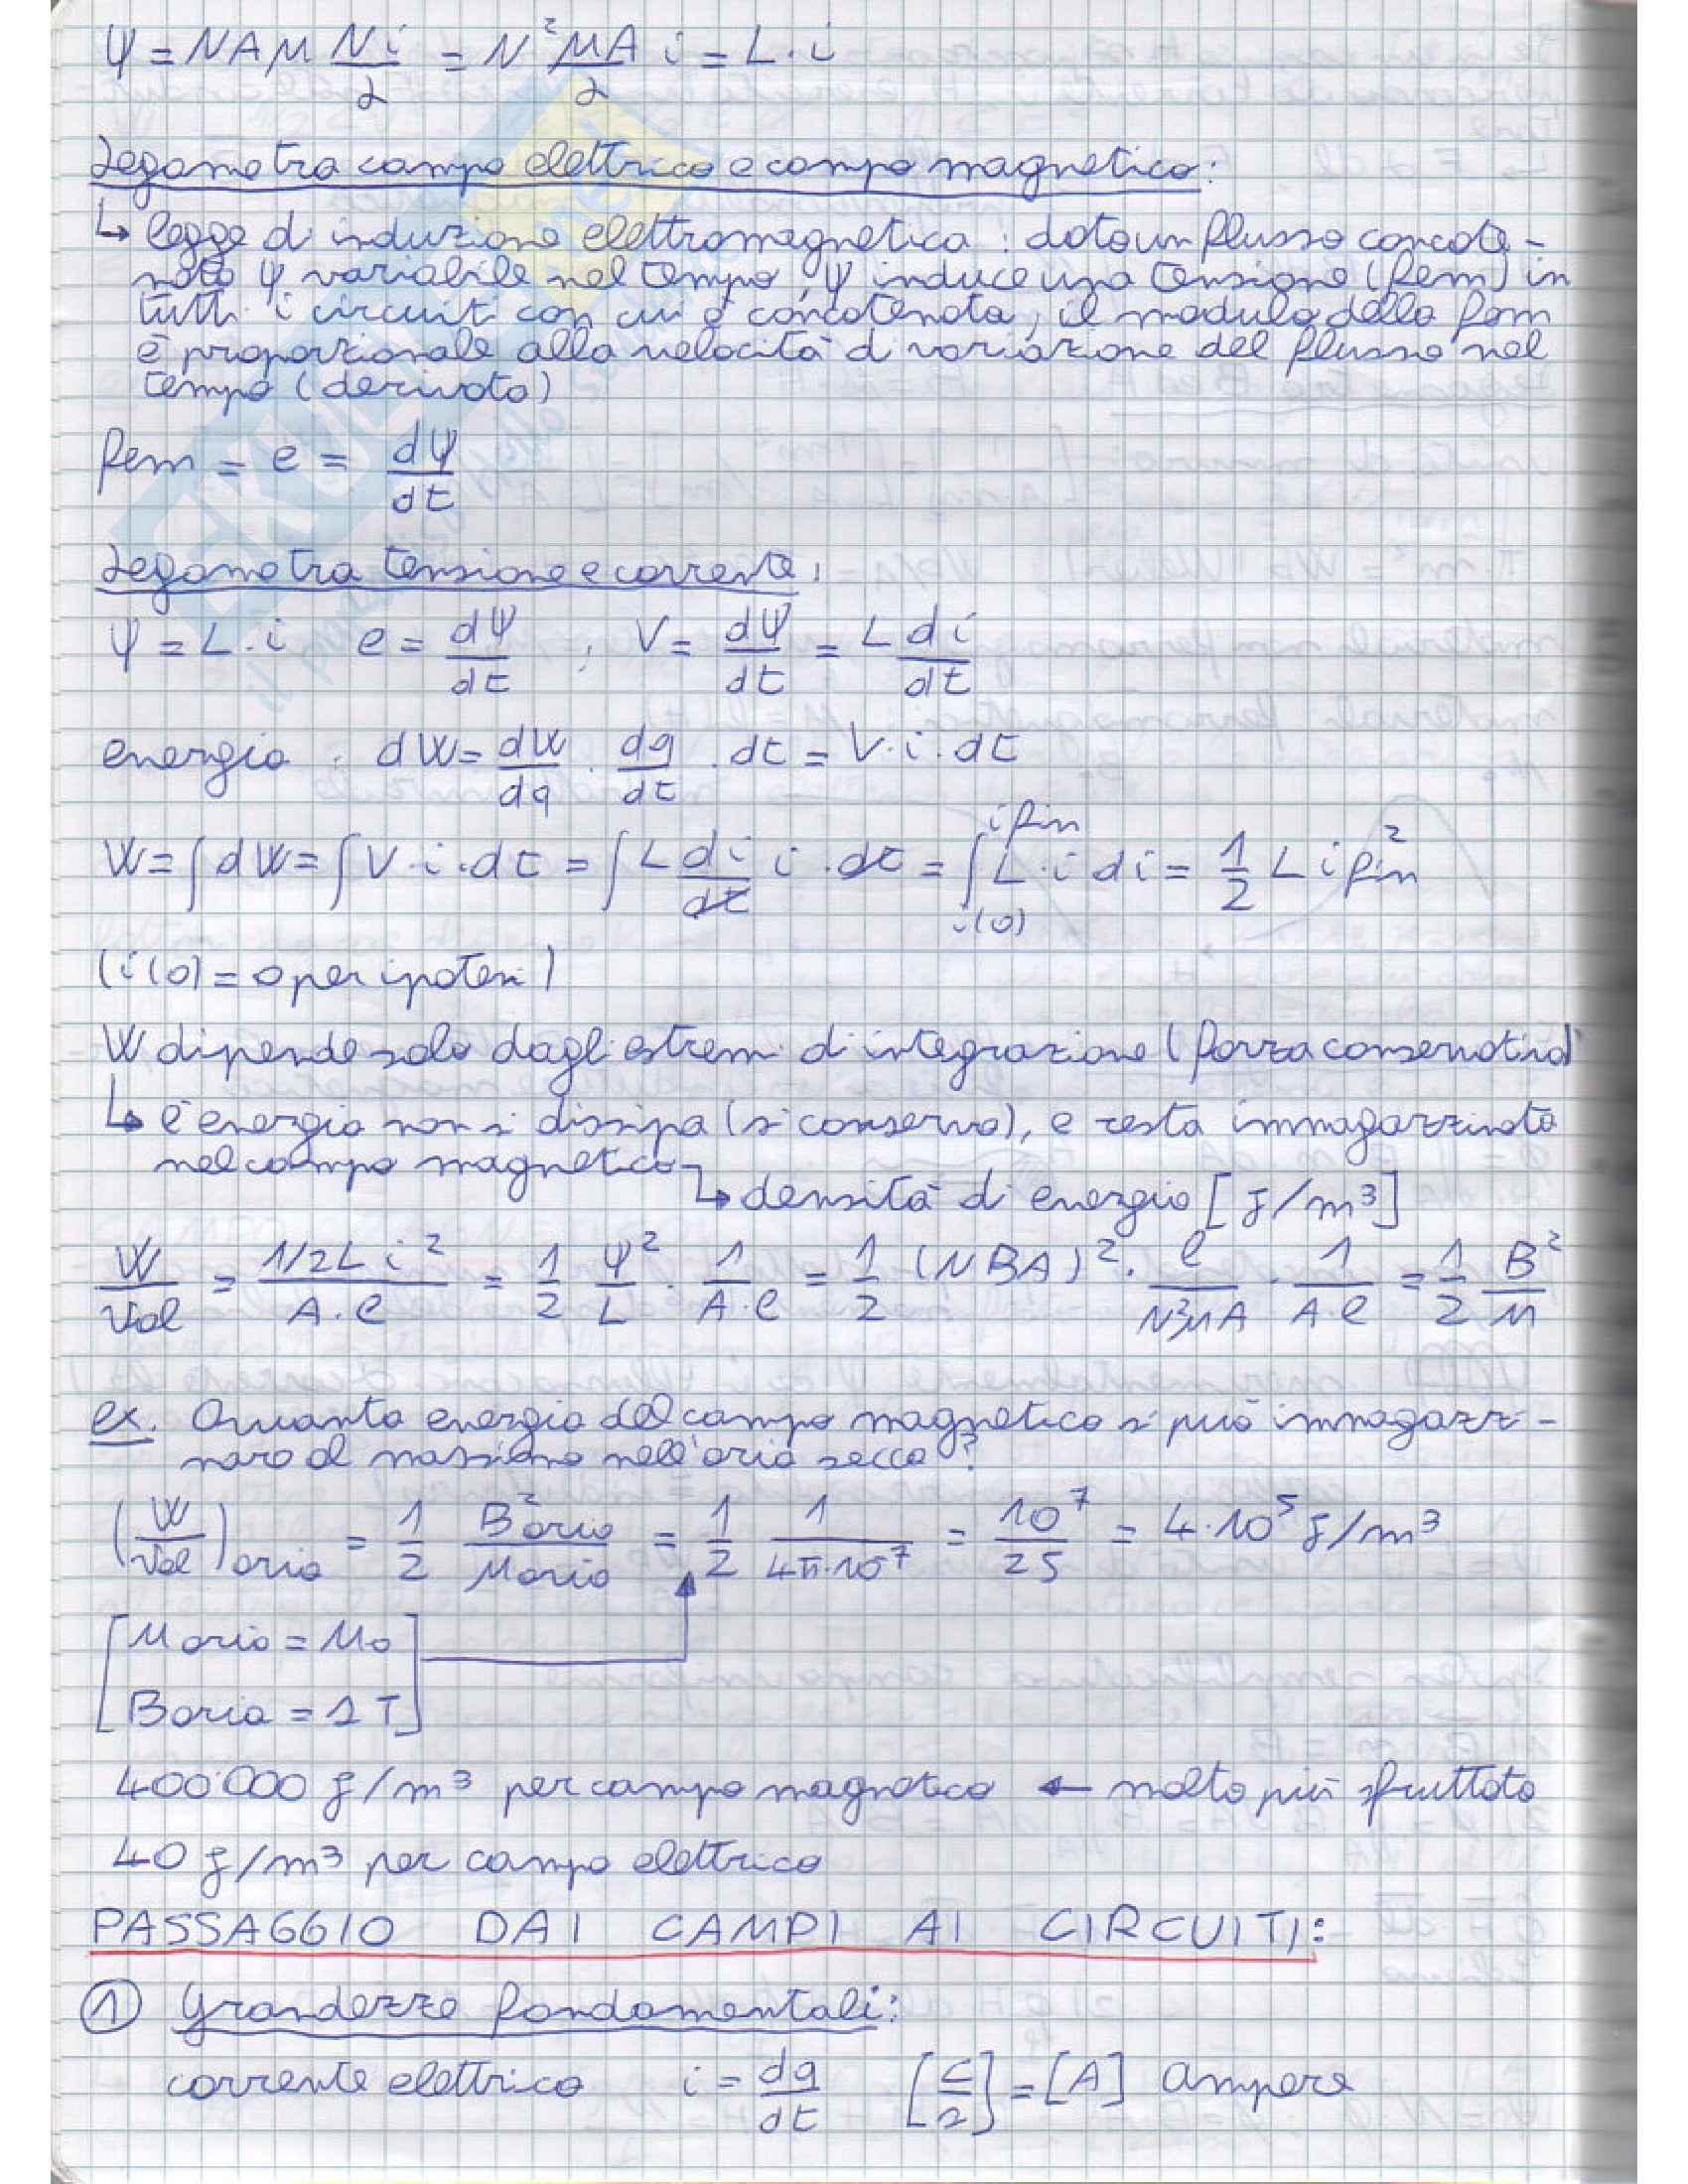 Ψ = NAμ Ni/l = N² μA/l i = L·i
Legame tra campo elettrico e campo magnetico:
↳ legge di induzione elettromagnetica: dato un flusso concate-
nato Ψ variabile nel tempo, Ψ induce una tensione (fem) in
tutti i circuiti con cui è concatenata, il modulo della fem
è proporzionale alla velocità di variazione del flusso nel
tempo (derivata)
fem = e = dΨ/dt
Legame tra tensione e corrente:
Ψ = L·i e = dΨ/dt ; V = dΨ/dt = L di/dt
energia: dW = dW/dq · dq/dt · dt = V·i·dt
W = ∫dW = ∫V·i·dt = ∫L di/dt i·dt = ∫_{i(0)}^{i fin} L·i di = 1/2 L i fin²
(i(0) = 0 per ipotesi)
W dipende solo dagli estremi di integrazione (forza conservativa)
↳ l'energia non si dissipa (si conserva), e resta immagazzinata
nel campo magnetico
↳ densità di energia [J/m³]
W/Vol = 1/2 L i²/A·l = 1/2 Ψ²/L · 1/A·l = 1/2 (NBA)² · l/N²μA · 1/A·l = 1/2 B²/μ
ex. Quanta energia del campo magnetico si può immagazzi-
nare al massimo nell'aria secca?
(W/Vol)aria = 1/2 B²aria/μaria = 1/2 1/4π·10⁻⁷ = 10⁷/25 = 4·10⁵ J/m³
[μaria = μ0
Baria = 1T]
400'000 J/m³ per campo magnetico ← molto più sfruttato
40 J/m³ per campo elettrico
PASSAGGIO DAI CAMPI AI CIRCUITI:
① Grandezze fondamentali:
corrente elettrica i = dq/dt [C/s] = [A] Ampere